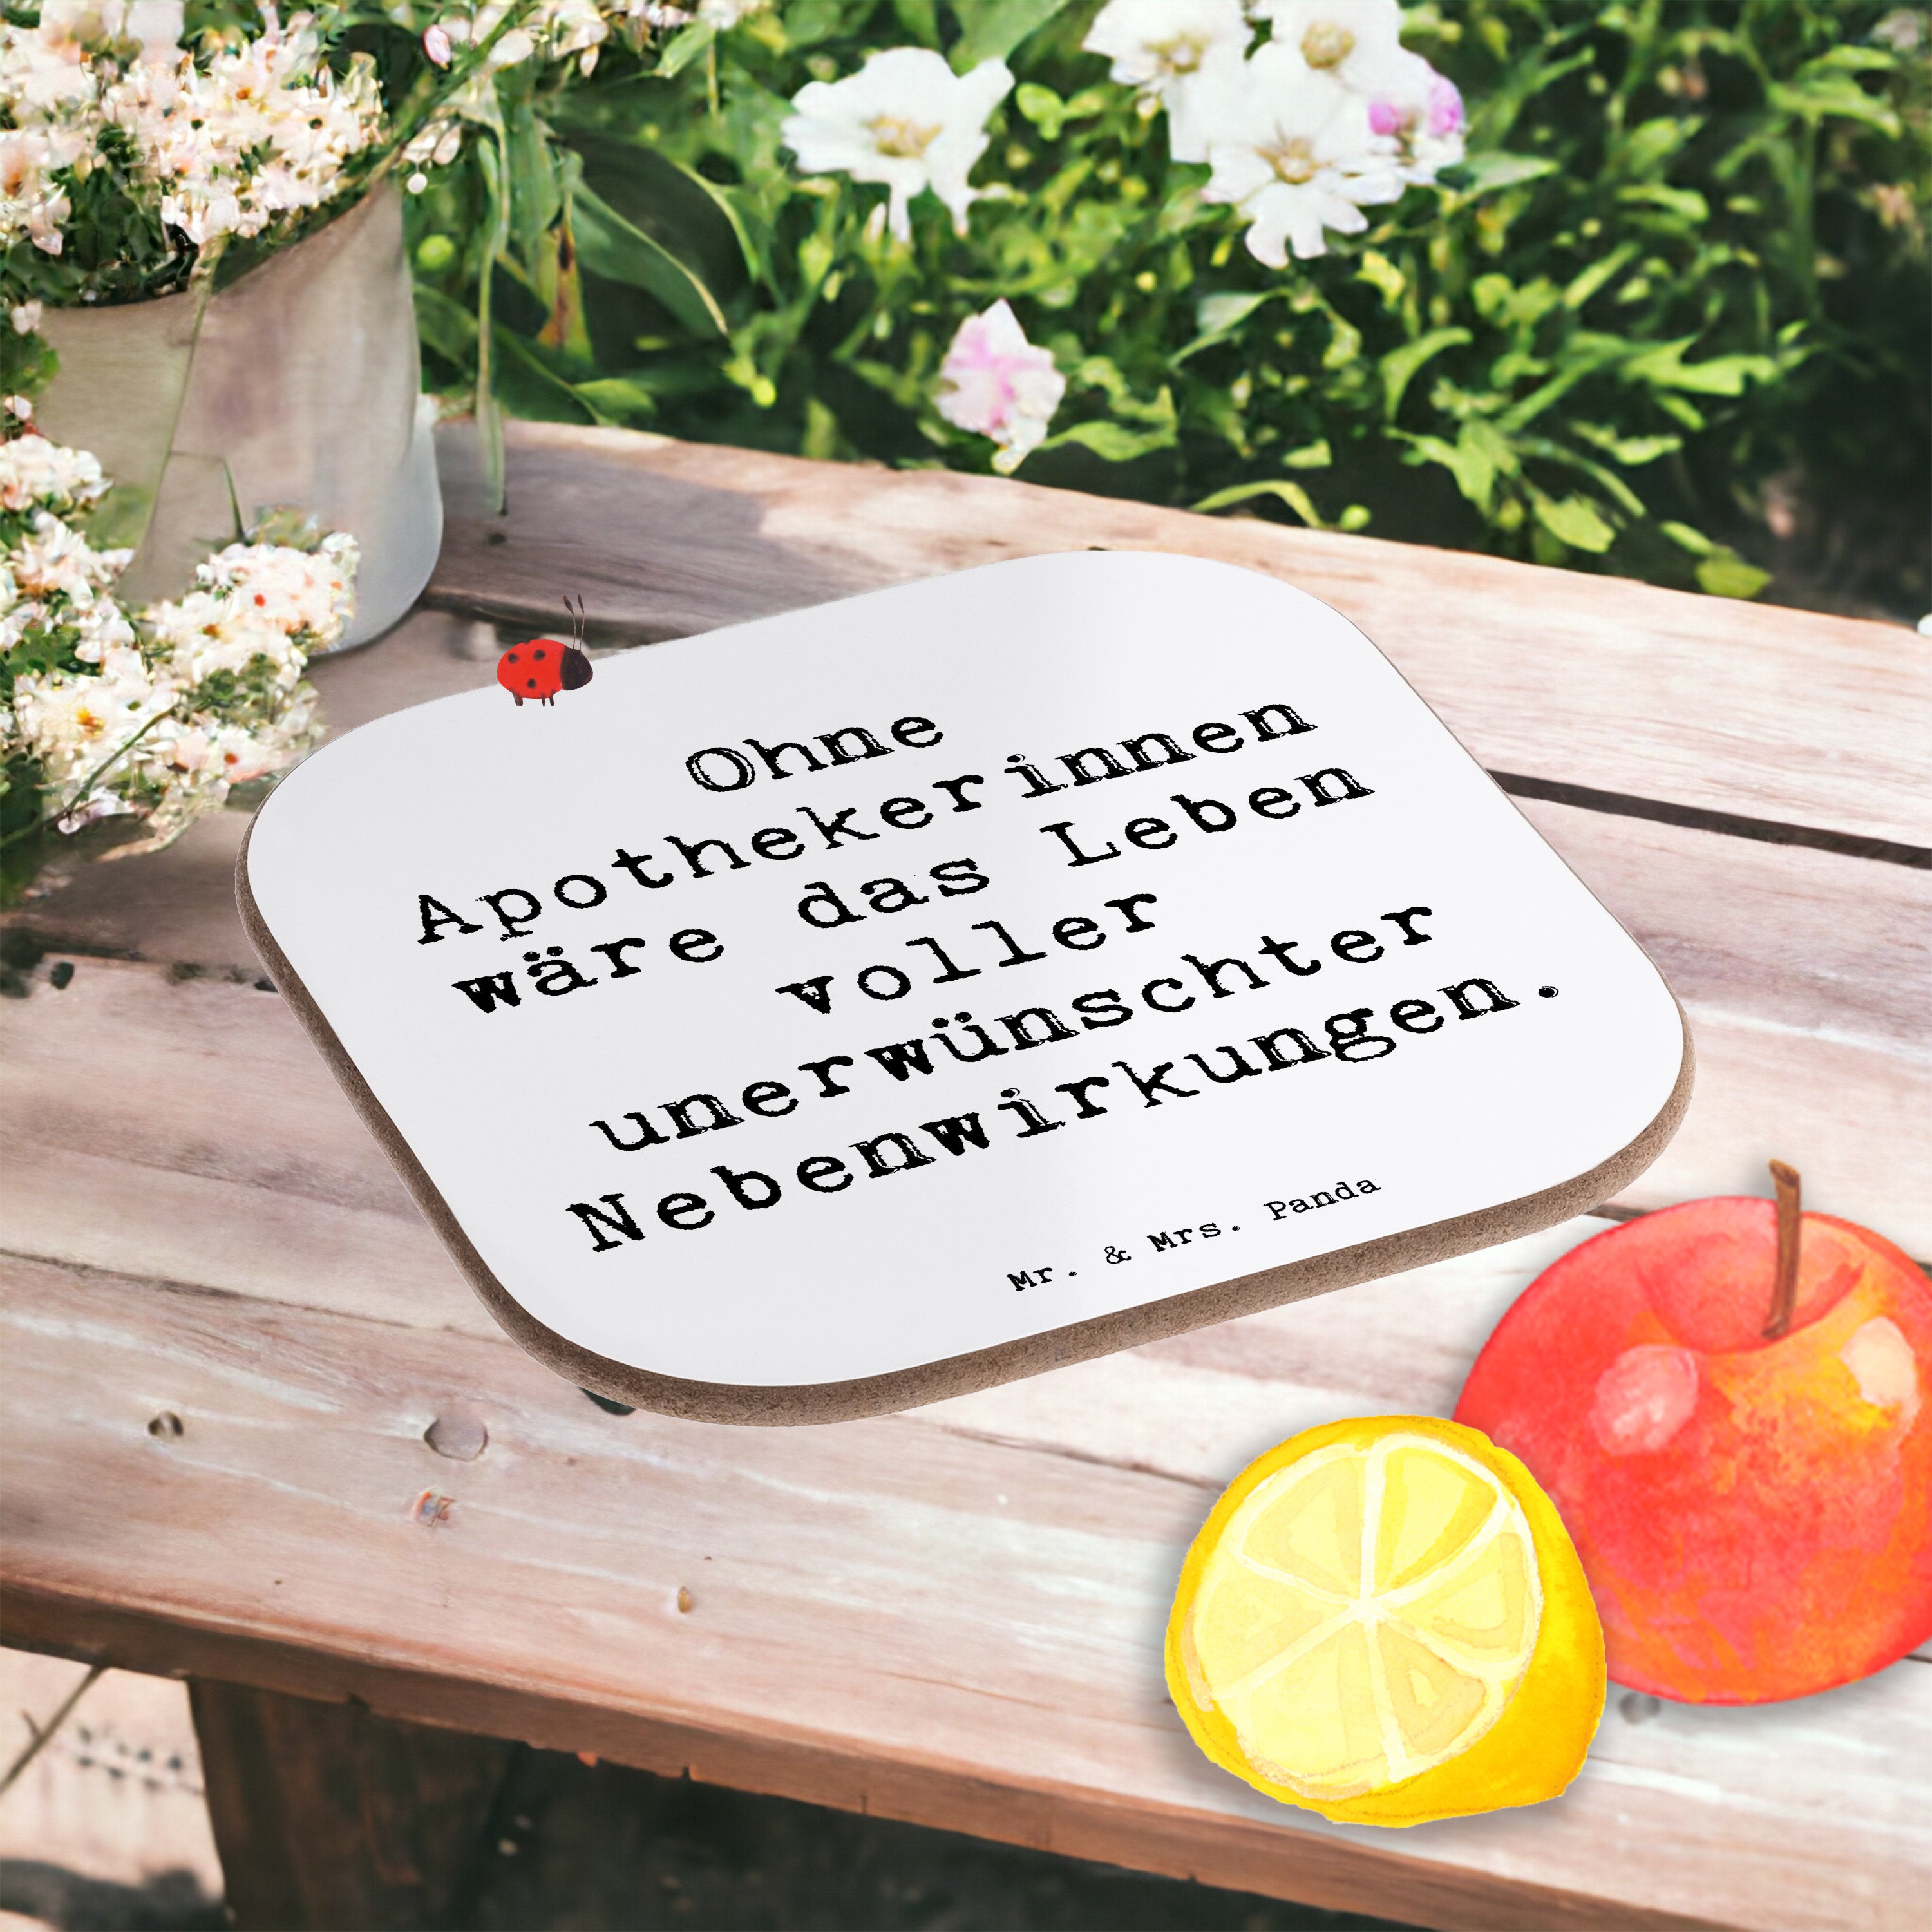 Ohne
Apothekerinnen
wäre das Leben
voller
unerwünschter
Nebenwirkungen.
Mr. & Mrs. Panda